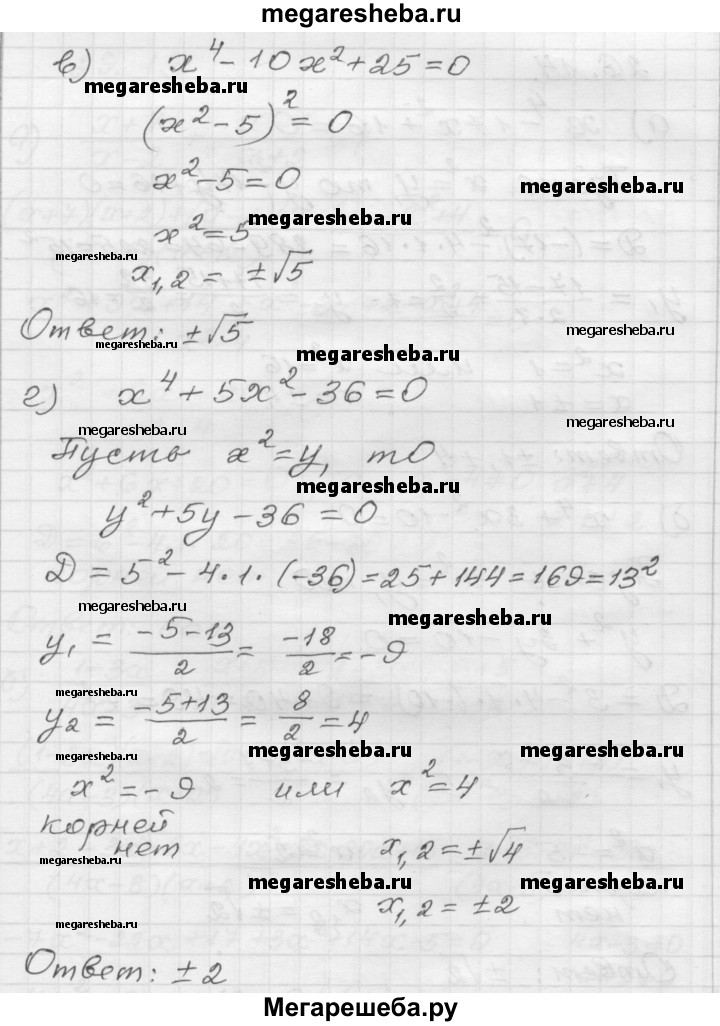 megaresheba.ru
в) x⁴ - 10x² + 25 = 0
megaresheba.ru
(x² - 5)² = 0
x² - 5 = 0
megaresheba.ru
megaresheba.ru
x² = 5
megaresheba.ru
x₁,₂ = ±√5
Ответ: ±√5
megaresheba.ru
megaresheba.ru
megaresheba.ru
г) x⁴ + 5x² - 36 = 0
megaresheba.ru
megaresheba.ru
Пусть x² = y, то
megaresheba.ru
y² + 5y - 36 = 0
Д = 5² - 4·1·(-36) = 25 + 144 = 169 = 13²
megaresheba.ru
megaresheba.ru
y₁ = (-5-13)/2 = -18/2 = -9
megaresheba.ru
y₂ = (-5+13)/2 = 8/2 = 4
megaresheba.ru
megaresheba.ru
megaresheba.ru
x² = -9 или x² = 4
корней
нет x₁,₂ = ±√4
megaresheba.ru
megaresheba.ru
megaresheba.ru
x₁,₂ = ±2
megaresheba.ru
Ответ: ±2
Мегарешеба.ру